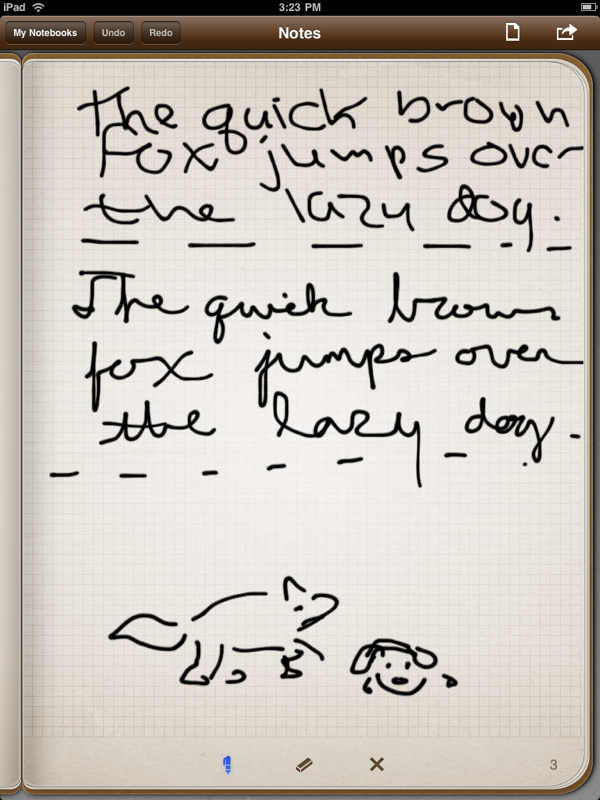 iPad 3:23 PM
My Notebooks Undo Redo Notes
The quick brown
Fox jumps over
the lazy dog.
The quick brown
fox jumps over
the lazy dog.
3